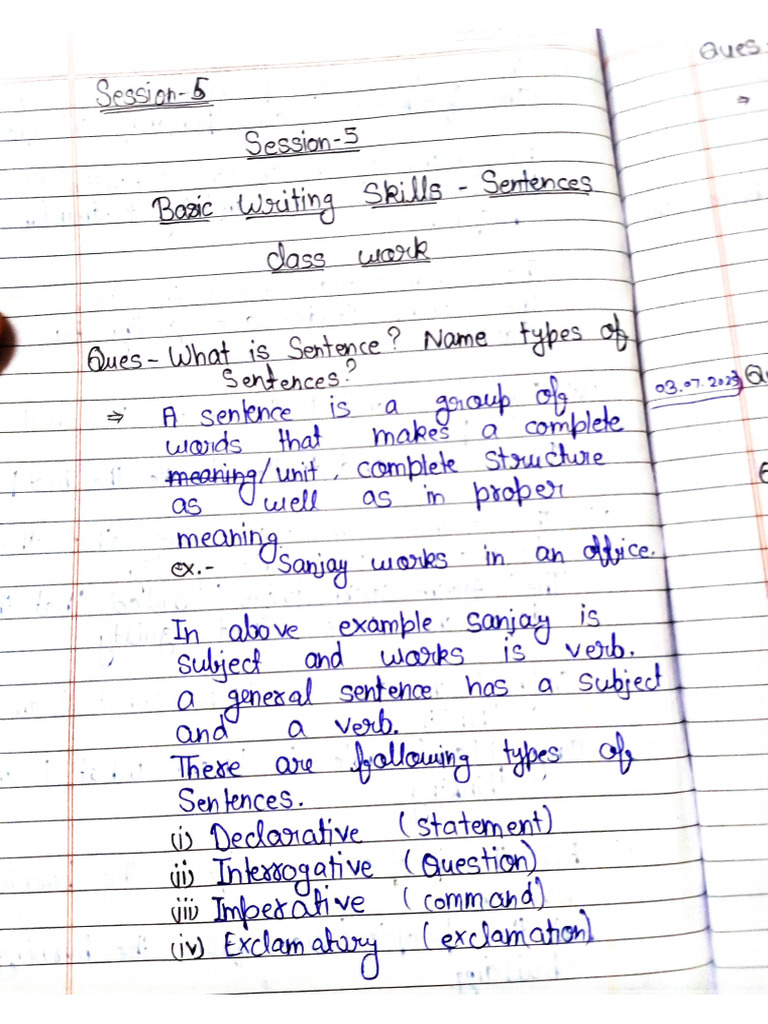 Session-5
Session-5
Basic Writing Skills - Sentences
class work
Ques - What is Sentence? Name types of
Sentences?
⇒ A sentence is a group of
words that makes a complete
meaning/unit, complete structure
as well as in proper
meaning.
ex.- Sanjay works in an office.
In above example Sanjay is
subject and works is verb.
a general sentence has a subject
and a verb.
There are following types of
Sentences.
(i) Declarative (statement)
(ii) Interrogative (Question)
(iii) Imperative (command)
(iv) Exclamatory (exclamation)
Ques.
⇒
03.07.2023